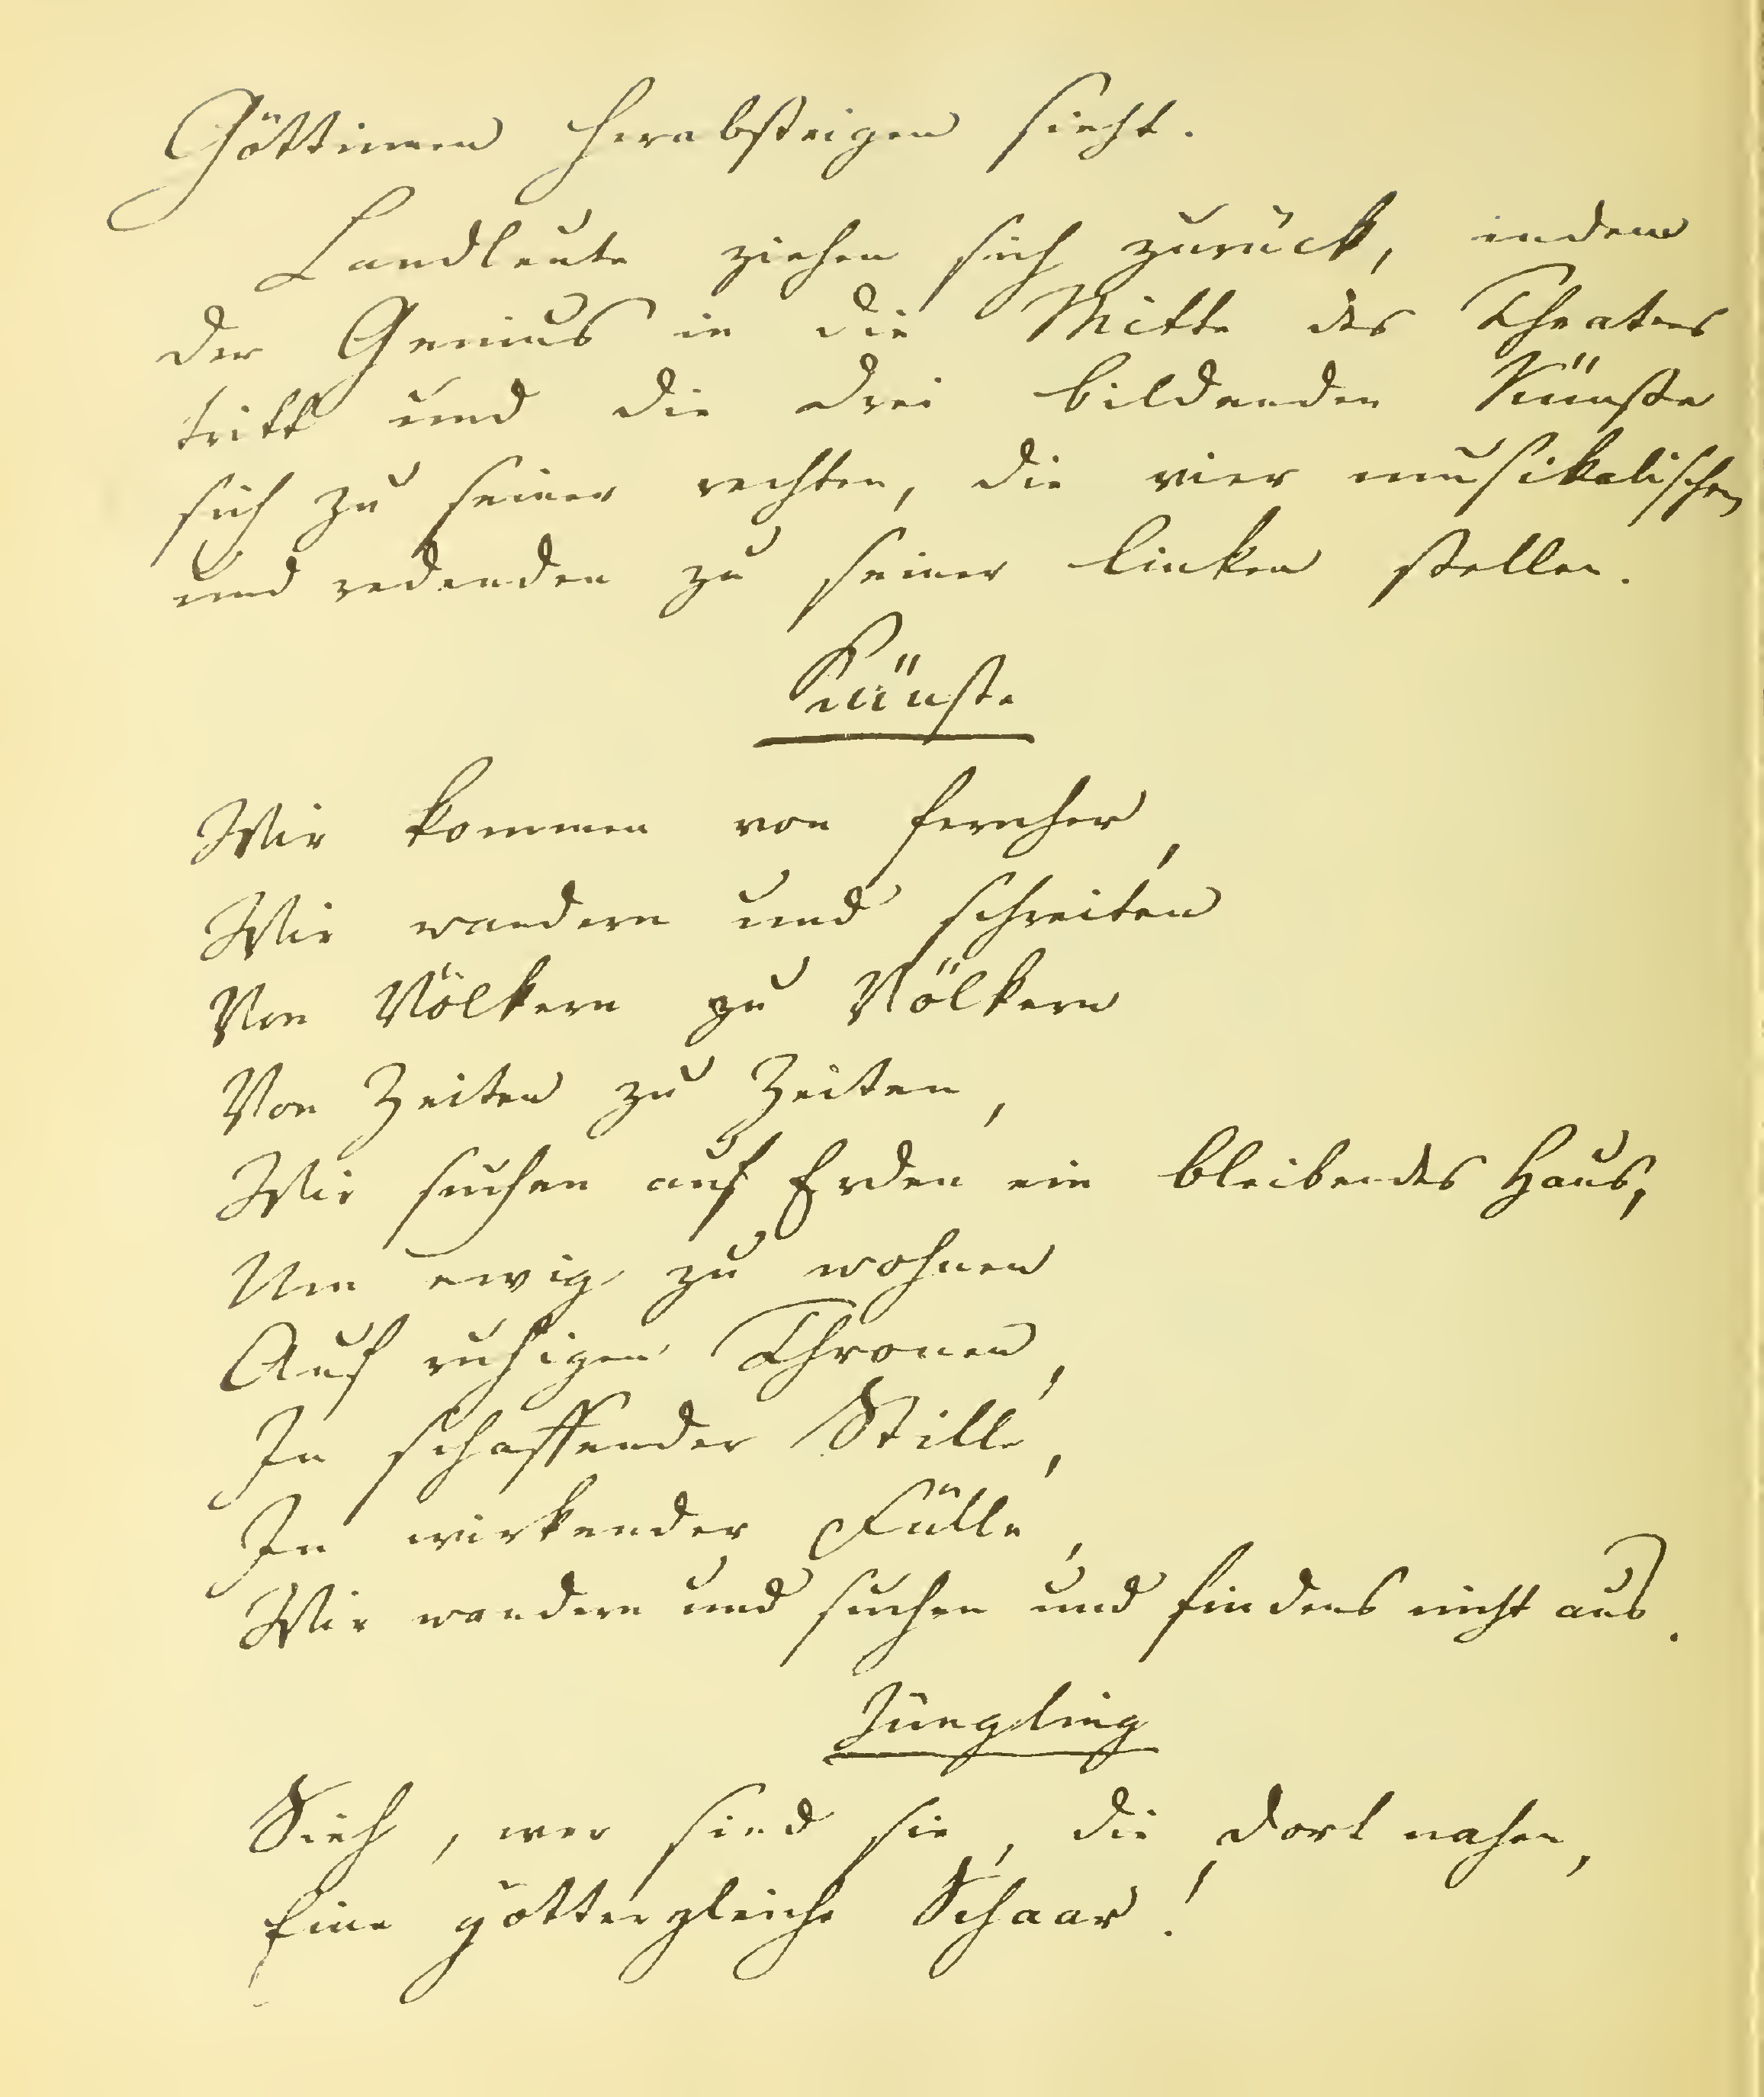 Göttinnen herabsteigen sieht.
Landleute ziehen sich zurück, indem
der Genius in die Mitte des Theaters
tritt und die drei bildenden Künste
sich zu seiner rechten, die vier musikalischen
und redenden zu seiner linken stellen.
Künste
Wir kommen von fernher,
Wir wandern und schreiten
Von Völkern zu Völkern
Von Zeiten zu Zeiten,
Wir suchen auf Erden ein bleibendes Haus,
Um ewig zu wohnen
Auf ruhigen Thronen,
In schaffender Stille,
In wirkender Fülle,
Wir wandern und suchen und findens nicht aus.
Jüngling
Sieh, wer sind sie, die dort nahen,
Eine göttergleiche Schaar!